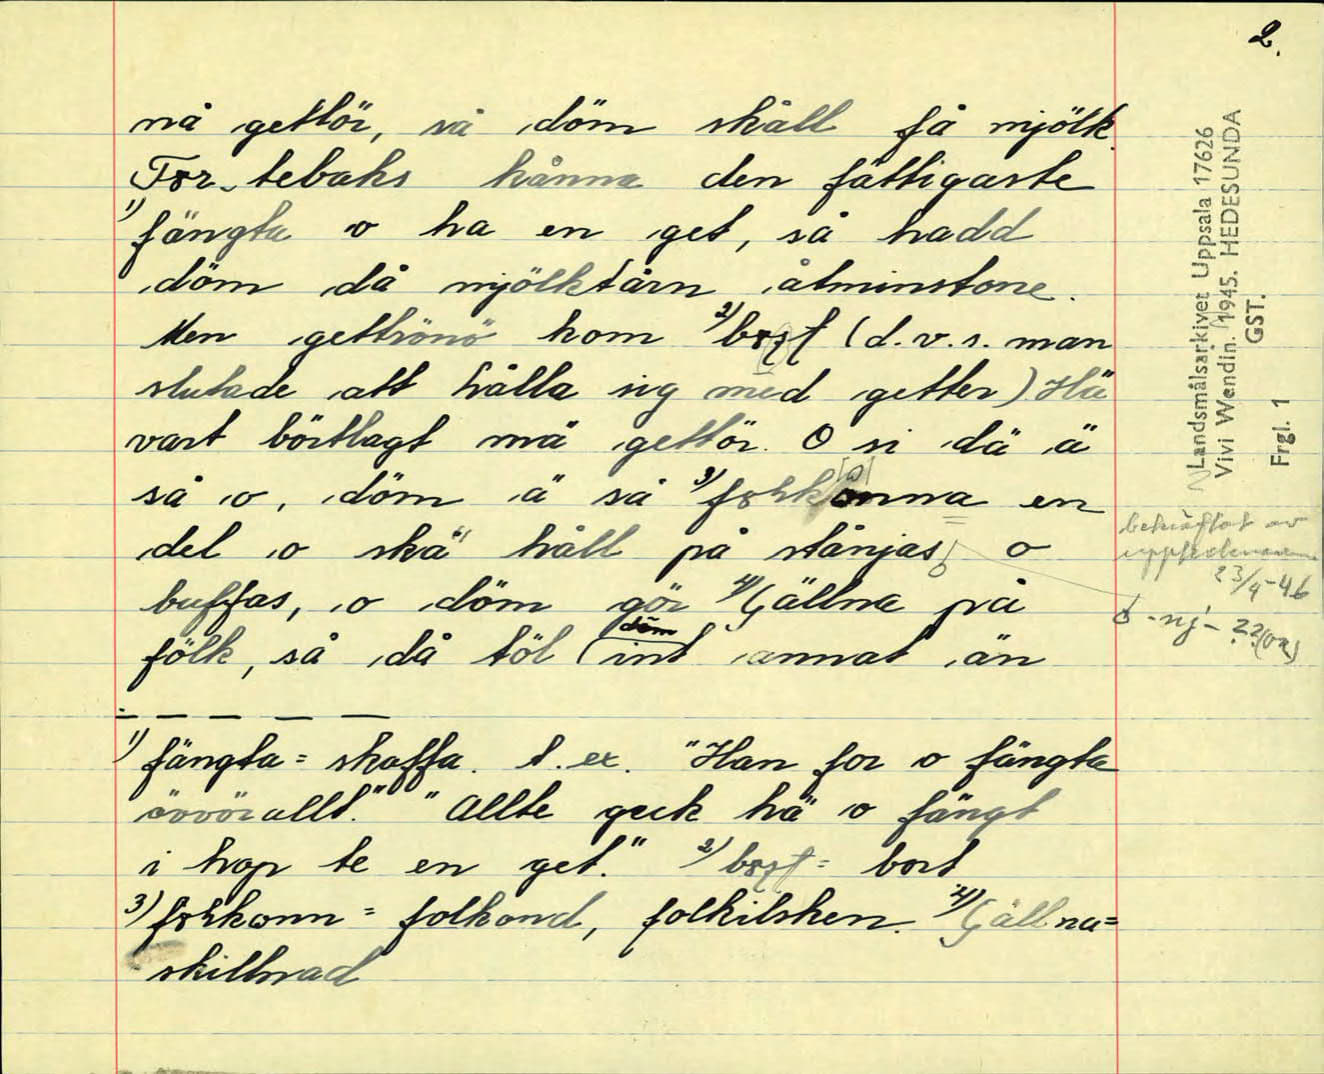 2.
nå gettör, så döm skåll få mjölk.
För tebaks kånna den fattigaste
1) fängta o ha en get, så hadd
döm då mjölktårn åtminstone.
Men gettrönö kom 2) (d.v.s. man
slutade att hålla sig med getter) Hä
vart börtlagt mä gettör. O si dä ä
så o, döm ä så 3) en
del o ska håll på stånjas o
buffas, o döm gör 4) på
fölk, så då töl döm int annat än
1) fängta = skaffa. t. ex. "Han for o fängta
övvörallt." "Allte geck hä o fängt
i hop te en get." 2) = bort
3) = folkond, folkilsken. 4)
skillnad
Landsmålsarkivet Uppsala 17626
Vivi Wendin. 1945. HEDESUNDA
GST.
Frgl. 1
bekräftat av
23/9-46
-nj- ??